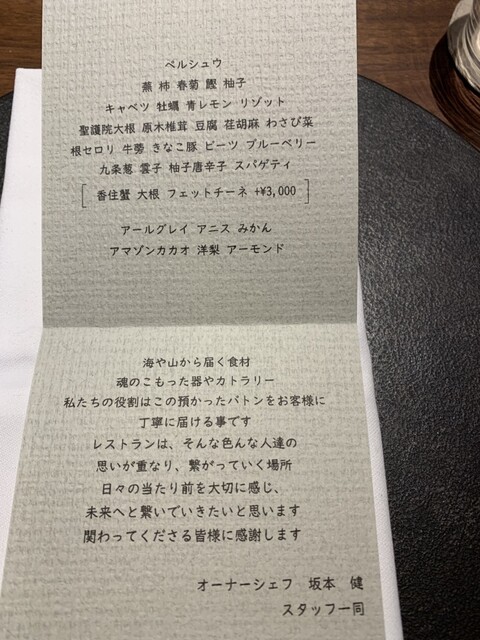 ペルシュウ
蕪 柿 春菊 鰹 柚子
キャベツ 牡蠣 青レモン リゾット
聖護院大根 原木椎茸 豆腐 荏胡麻 わさび菜
根セロリ 牛蒡 きなこ豚 ビーツ ブルーベリー
九条葱 雲子 柚子唐辛子 スパゲティ
[ 香住蟹 大根 フェットチーネ +¥3,000 ]
アールグレイ アニス みかん
アマゾンカカオ 洋梨 アーモンド
海や山から届く食材
魂のこもった器やカトラリー
私たちの役割はこの預かったバトンをお客様に
丁寧に届ける事です
レストランは、そんな色んな人達の
思いが重なり、繋がっていく場所
日々の当たり前を大切に感じ、
未来へと繋いでいきたいと思います
関わってくださる皆様に感謝します
オーナーシェフ 坂本 健
スタッフ一同